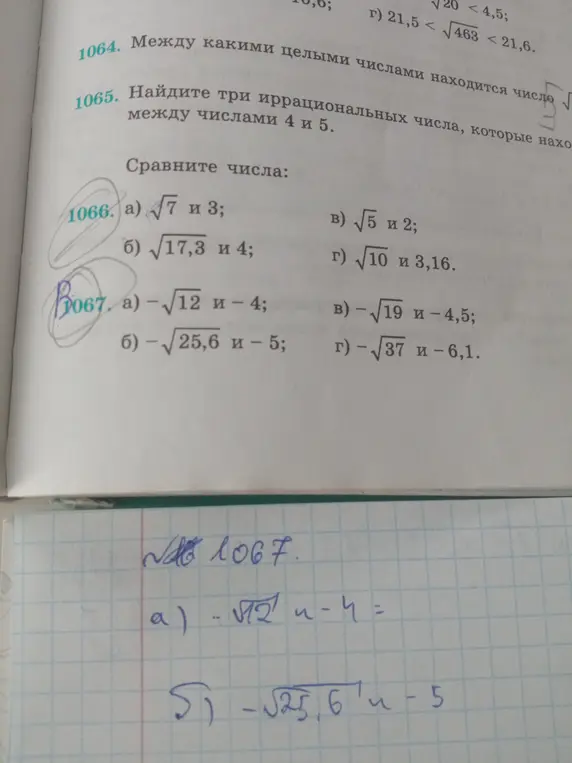 √20 < 4,5;
г) 21,5 < √463 < 21,6.
1064. Между какими целыми числами находится число
1065. Найдите три иррациональных числа, которые нахо
между числами 4 и 5.
Сравните числа:
1066. а) √7 и 3;
в) √5 и 2;
б) √17,3 и 4;
г) √10 и 3,16.
В
1067. а) −√12 и − 4;
в) −√19 и − 4,5;
б) −√25,6 и − 5;
г) −√37 и − 6,1.
1067.
а) -√12 и - 4 =
б) -√25,6 и - 5